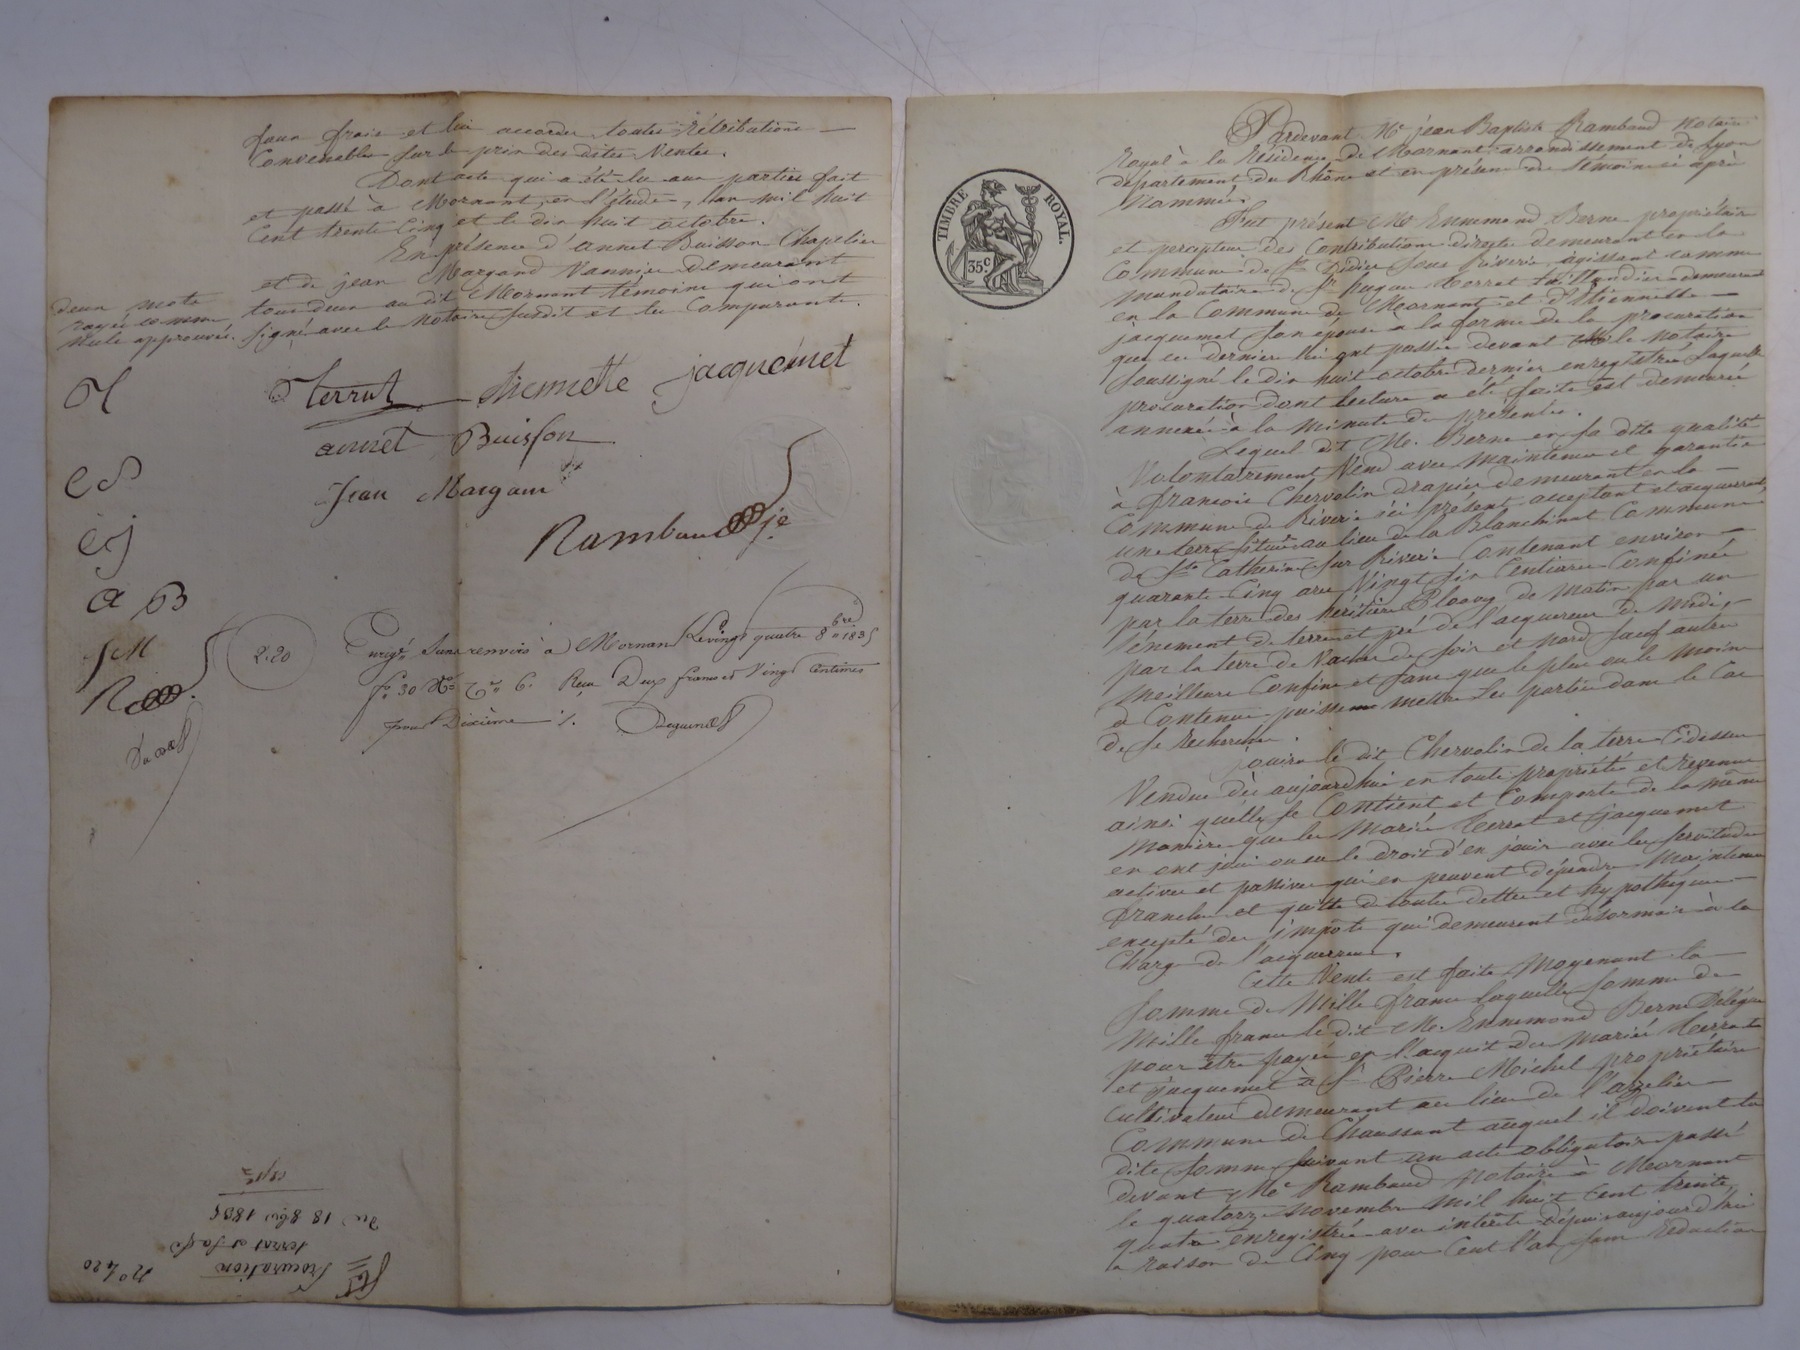 pour frais et lui accorder toutes rétributions
Convenables sur le prix des dites Ventes.
Dont acte qui a été lu aux parties fait
et passé à Mornant, en l'étude, l'an mil huit
Cent trente Cinq et le dix huit octobre.
En présence d'annet Buisson Chapelier
et de jean Margand Vannier demeurant
tous deux au dit Mornant témoins qui ont
signé avec le Notaire susdit et les Comparants.
deux mots
rayés comme
nuls approuvés.
Terrat Etiennette jacquemet
annet Buisson
Jean Margan
Rambaud
ej
a B
JM
R
2.20
Enrgé. Sans renvois à Mornant Le vingt quatre 8bre 1835
fo. 30 Ro. Ce. 6. Reçu Deux francs et Vingt Centimes
pour Dixième
No 420
Procuration
terrat et Jacqt
du 18 8bre 1835
TIMBRE ROYAL.
35c
Pardevant Me jean Baptiste Rambaud Notaire
Royal à la Résidence de Mornant arrondissement de Lyon
département du Rhône et en présence des témoins ci après
Nommés.
Fut présent Mr Ennemond Berne propriétaire
et percepteur des Contributions directes demeurant en la
Commune de St Didier sous Riverie, agissant comme
mandataire de Sr hugue Terrat taillandier demeurant
en la Commune de Mornant et d'Etiennette
jacquemet son épouse à la forme de la procuration
que ces derniers lui ont passée devant le Notaire
soussigné le dix huit octobre dernier enregistrée laquelle
procuration dont lecture a été faite est demeurée
annexée à la minute des présentes.
Lequel dit Mr. Berne en sa dite qualité
Volontairement Vend avec maintenue et garantie
à françois Chervolin drapier demeurant en la
Commune de Riverie ici présent acceptant et acquérant,
une terre située au lieu de la Blanchinat Commune
de Ste Catherine sur Riverie Contenant environ
quarante Cinq ares Vingt six Centiares Confinée
par la terre des héritiers de matin par un
ténement de terre et pré de l'acquéreur de midi,
par la terre de de soir et nord sauf autres
meilleurs Confins et sans que le plus ou le moins
de Contenue puissent mettre les parties dans le Cas
de se rechercher.
jouira le dit Chervolin de la terre Cidessus
Vendue dès aujourd'hui en toute propriété et revenus
ainsi qu'elle se Contient et Comporte de la même
manière que les Mariés Terrat et jacquemet
en ont joui ou eu le droit d'en jouir avec les servitudes
actives et passives qui en peuvent dépendre Maintenue
franche et quitte de toutes dettes et hypothèques
excepté des impôts qui demeurent désormais à la
Charge de l'acquéreur.
Cette Vente est faite Moyenant la
somme de Mille francs laquelle somme de
Mille francs le dit Mr. Ennemond Berne Délègue
pour être payée en l'acquit des mariés Terrat
et jacquemet à Sr Pierre Michel propriétaire
Cultivateur demeurant au lieu de l'arzelier
Commune de Chaussant auquel il doivent la
dite somme suivant un acte obligatoire passé
devant Me Rambaud Notaire à Mornant
le quatorze novembre mil huit Cent trente
quatre enregistrée avec intérêts dépuis aujourd'hui
à raison de Cinq pour Cent l'an sans Réduction